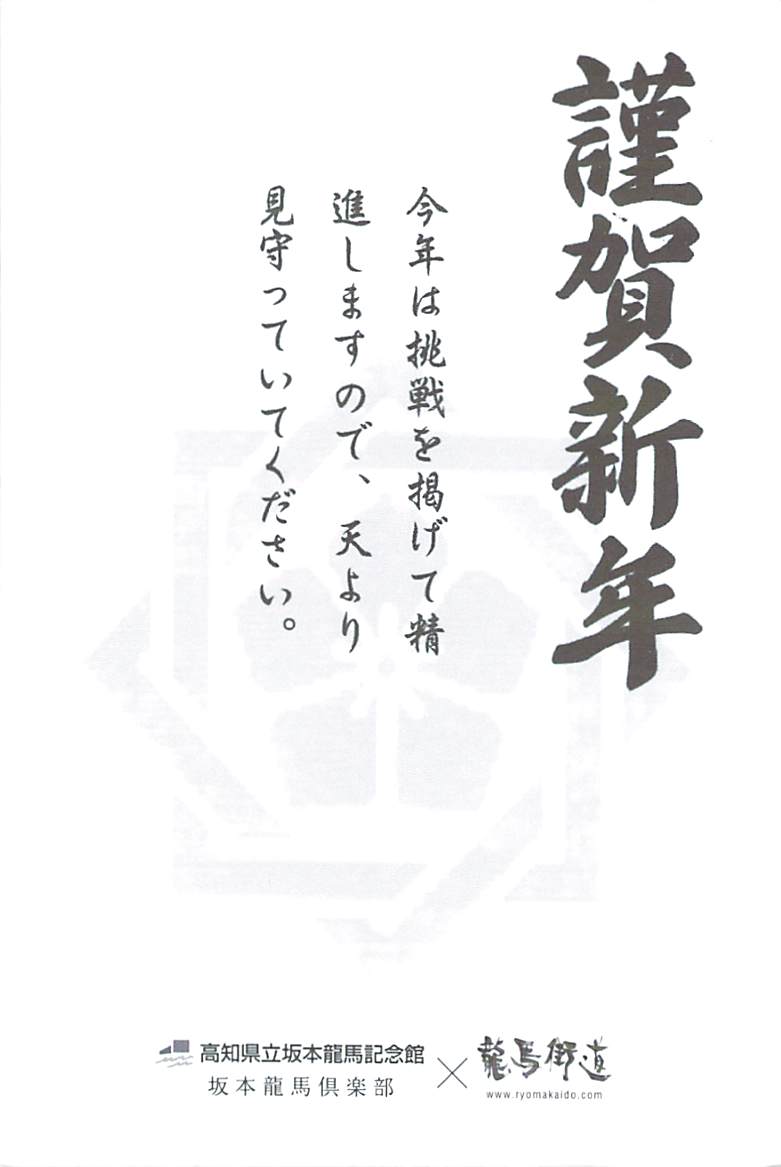 謹賀新年
今年は挑戦を掲げて精
進しますので、天より
見守っていてください。
高知県立坂本龍馬記念館
坂本龍馬倶楽部
×
龍馬街道
www.ryomakaido.com